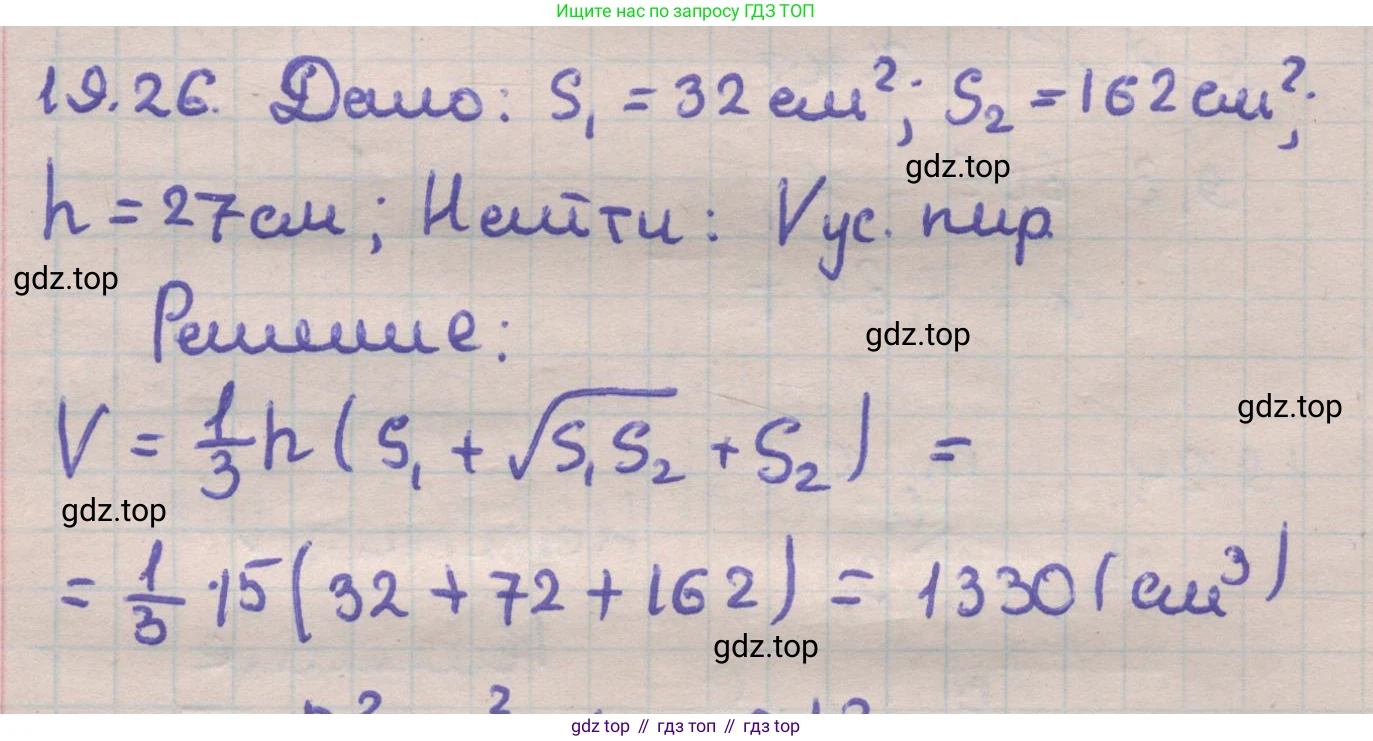 Ищите нас по запросу ГДЗ ТОП
19.26. Дано: S₁ = 32 см²; S₂ = 162 см²;
gdz.top
h = 27 см; Найти: Vус. пир.
gdz.top
Решение:
gdz.top
gdz.top
V = 1/3 h (S₁ + √S₁S₂ + S₂) =
gdz.top
= 1/3 · 15 (32 + 72 + 162) = 1330 (см³)
gdz.top
gdz top // гдз топ // гдз top